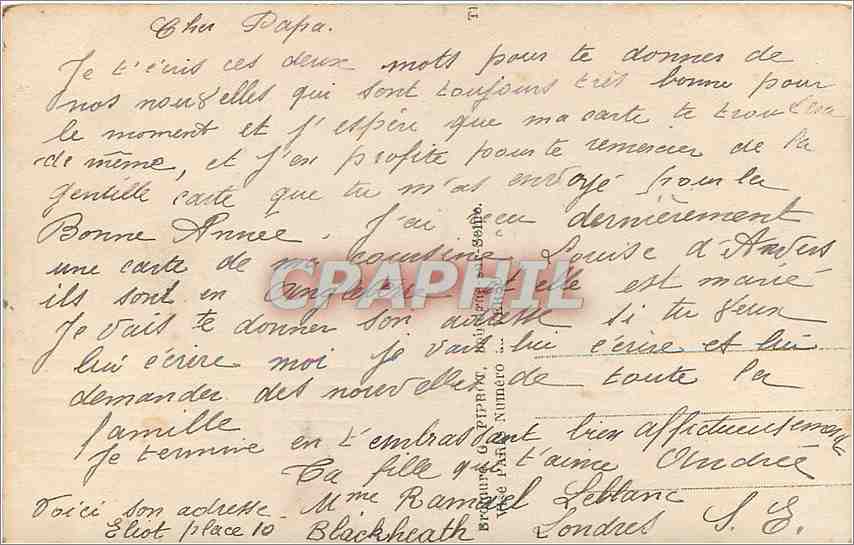 Cher Papa.
Je t'écris ces deux mots pour te donner de
nos nouvelles qui sont toujours très bonne pour
le moment et j'espère que ma carte te trouvera
de même, et j'en profite pour te remercier de la
gentille carte que tu m'as envoyé pour la
Bonne Année. J'ai eçu dernièrement
une carte de ma coursine Louise d'Anvers
ils sont en Angleterre et elle est marié
Je vais te donner son adresse si tu veux
lui écrire moi je vais lui écrire et lui
demander des nouvelles de toute la
famille
Je termine en t'embrassant bien affectueusement
Ta fille qui t'aime Andrée
Voici son adresse Mme Leblanc
Eliot place 10 Blackheath Londres S. E.
CPARPHIL
PIPROT,
Visé PARIS Numéro